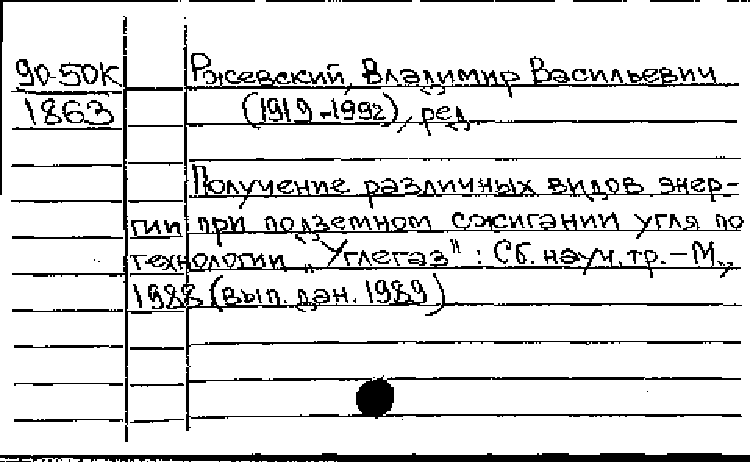 90-50К Ржевский, Владимир Васильевич
1863 (1919-1992), ред.
Получение различных видов энер-
гии при подземном сжигании угля по
технологии „Углегаз": Сб. науч. тр. – М.,
1988 (вып. дан. 1989)